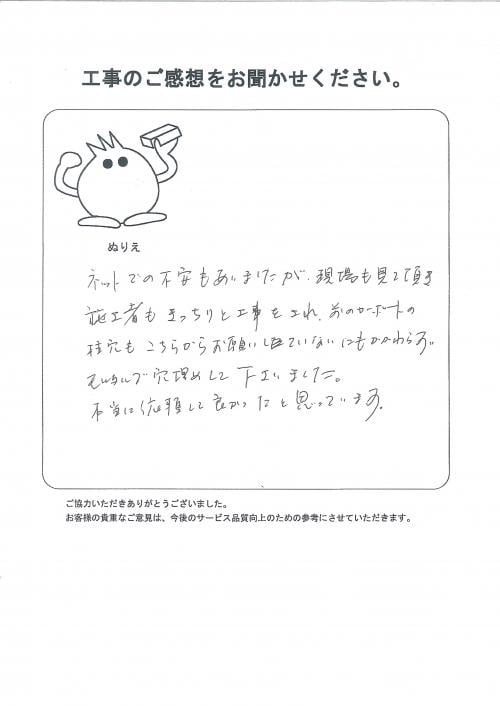 工事のご感想をお聞かせください。
ぬりえ
ネットでの不安もありましたが、現場も見て頂き
施工者もきっちりと工事をされ、前のカーポートの
柱穴もこちらからお願いしていないにもかかわらず、
穴埋めして下さいました。
本当に依頼して良かったと思っています。
ご協力いただきありがとうございました。
お客様の貴重なご意見は、今後のサービス品質向上のための参考にさせていただきます。